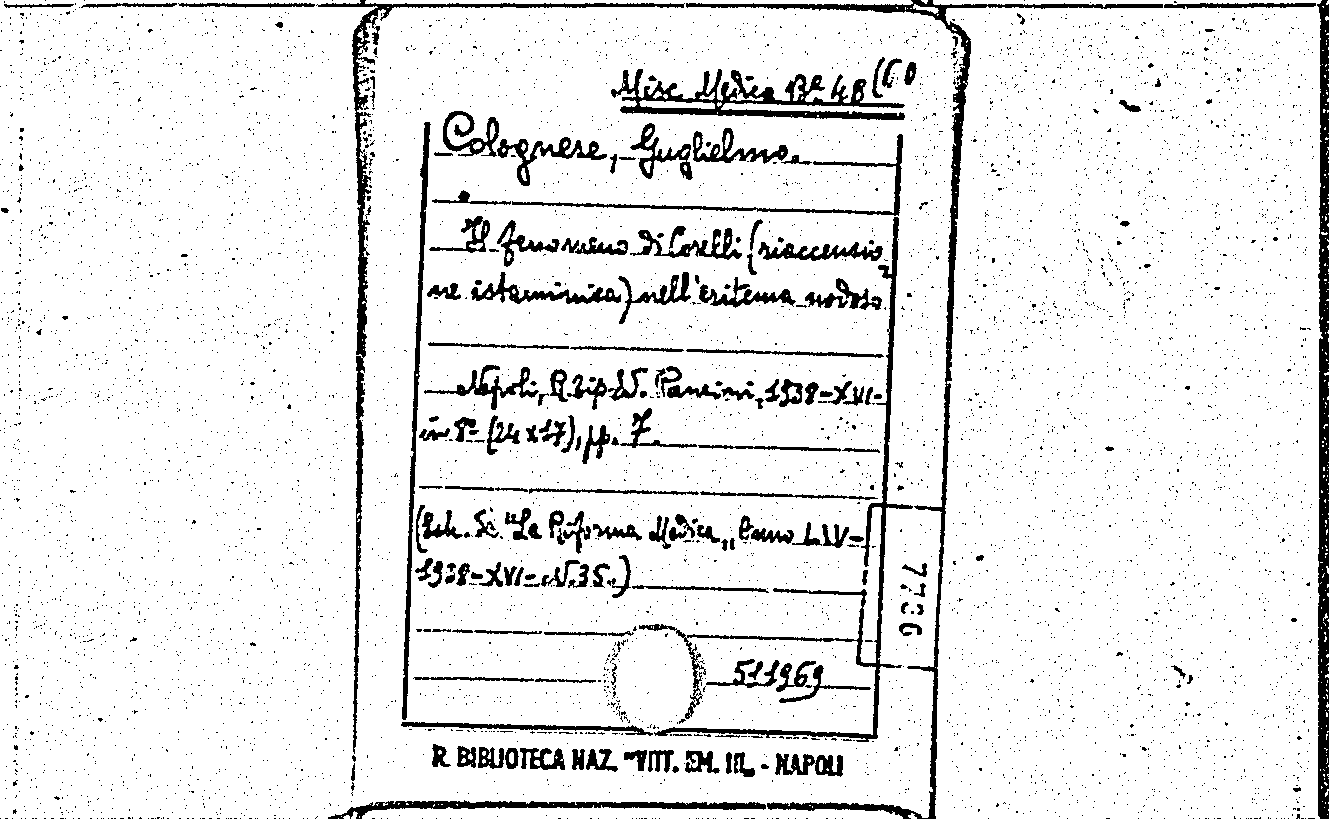 Misc. Medica Bª 48 (60
Colognese, Guglielmo.
Il fenomeno di Corelli (riaccensio=
ne istaminica) nell'eritema nodoso
Napoli, R. Tip. N. Pansini, 1938-XVI-
in 8º (24 x 17), pp. 7.
(Estr. da "La Riforma Medica„ Anno LIV-
1938-XVI- N. 35.)
7736
511969
R. BIBLIOTECA NAZ. "VITT. EM. III. - NAPOLI